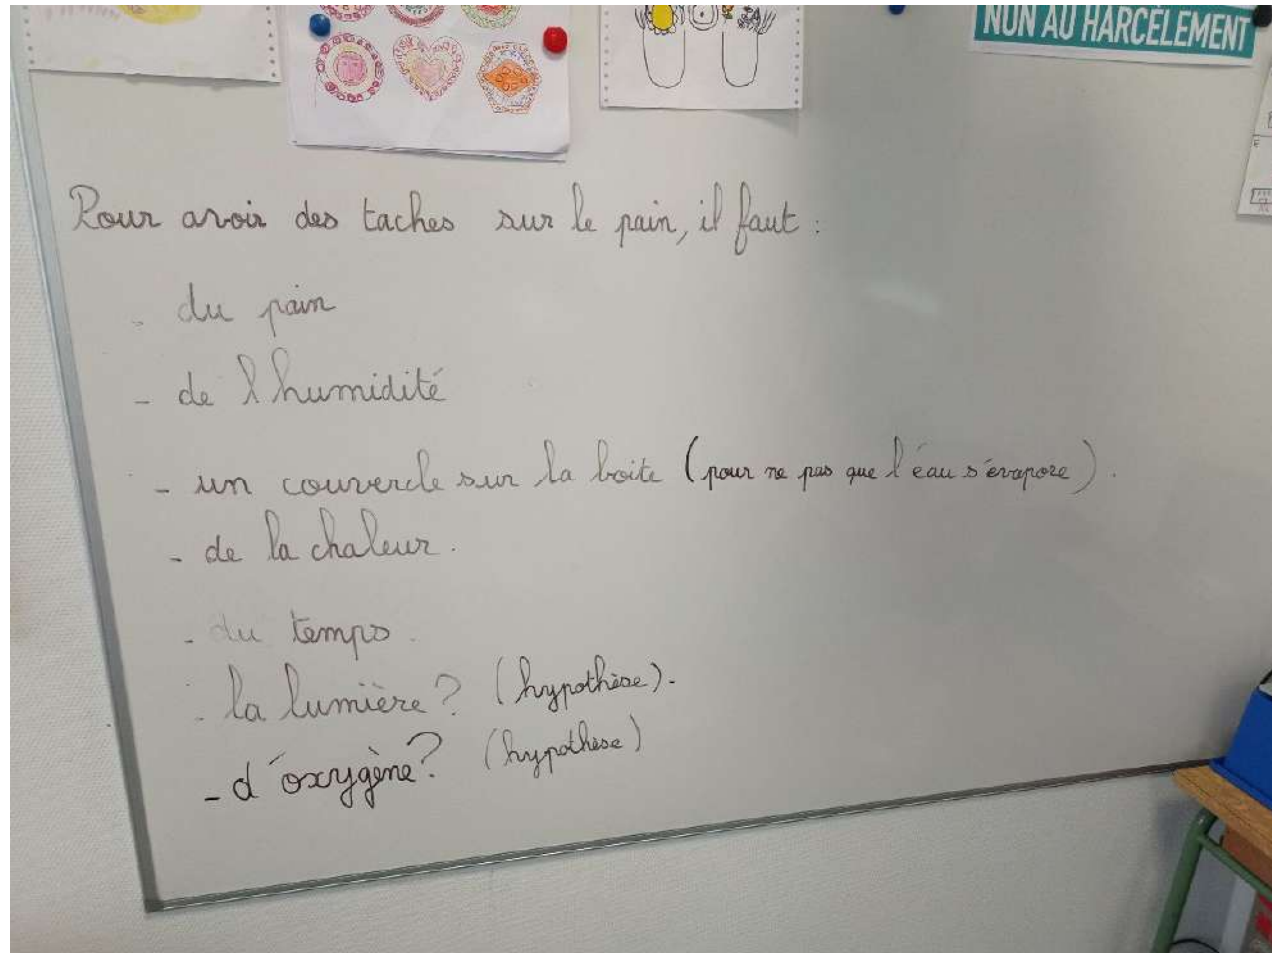 NON AU HARCÈLEMENT
Pour avoir des taches sur le pain, il faut :
- du pain
- de l'humidité
- un couvercle sur la boite (pour ne pas que l'eau s'évapore).
- de la chaleur.
- du temps.
- la lumière? (hypothèse).
- d'oxygène? (hypothèse)